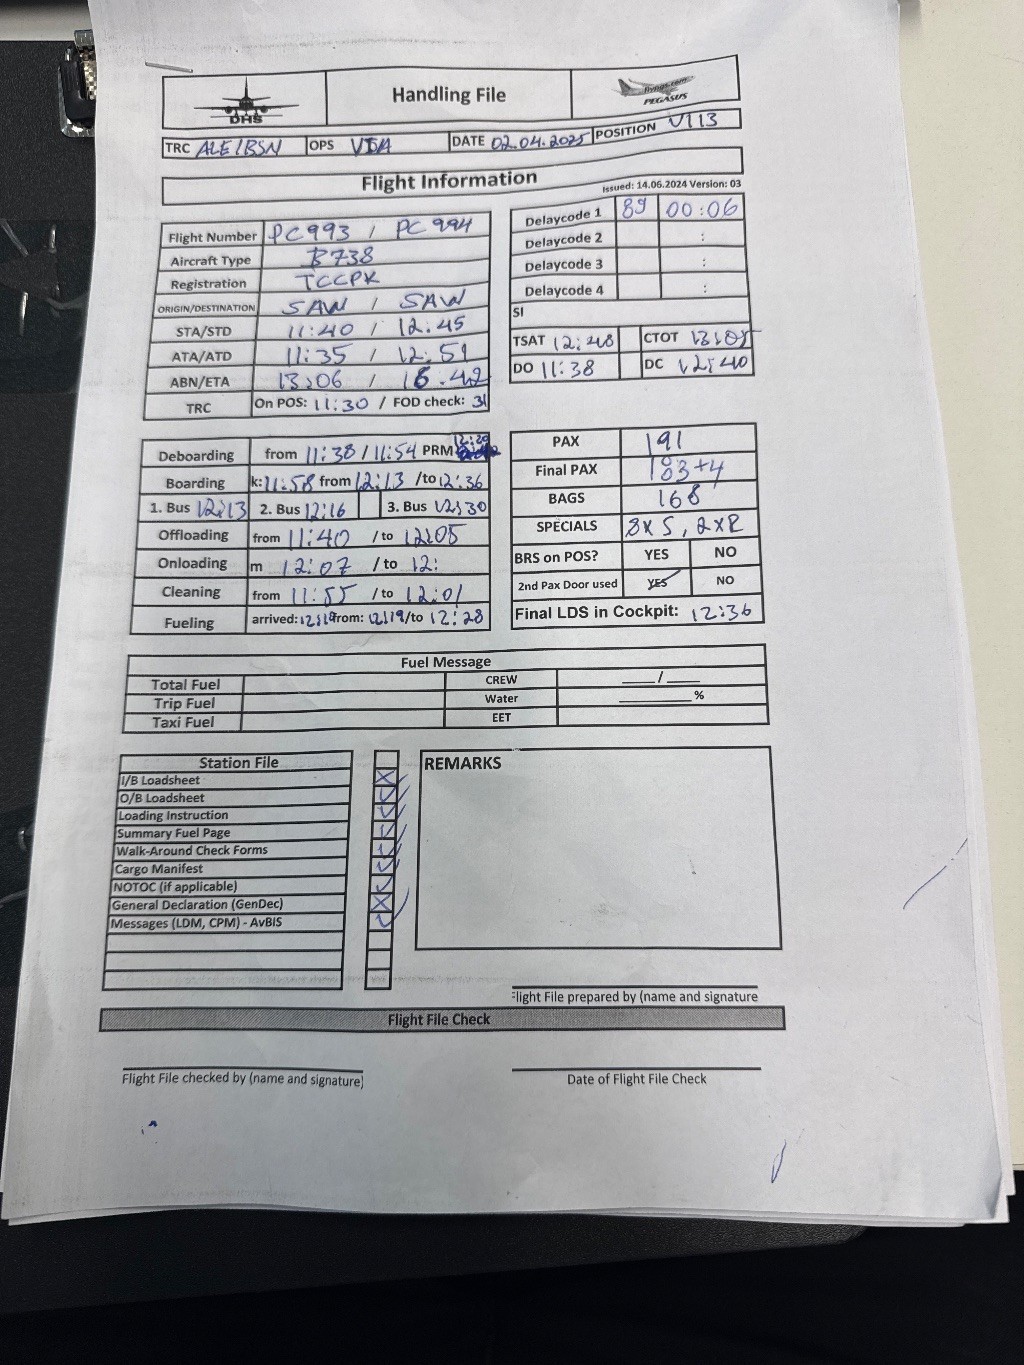 DHS
Handling File
flypgs.com
PEGASUS
TRC ALE/BSN OPS VDA DATE 02.04.2025 POSITION V113
Flight Information
Issued: 14.06.2024 Version: 03
Flight Number PC993 / PC994
Aircraft Type B738
Registration TCCPK
ORIGIN/DESTINATION SAW / SAW
STA/STD 11:40 / 12:45
ATA/ATD 11:35 / 12:51
ABN/ETA 13:06 / 16:42
TRC On POS: 11:30 / FOD check: 31
Delaycode 1 89 00:06
Delaycode 2 :
Delaycode 3 :
Delaycode 4 :
SI
TSAT 12:48 CTOT 13:05
DO 11:38 DC 12:40
Deboarding from 11:38 / 11:54 PRM 12:20
Boarding k: 11:58 from 12:13 /to 12:36
1. Bus 12:13 2. Bus 12:16 3. Bus 12:30
Offloading from 11:40 / to 12:05
Onloading m 12:07 / to 12:
Cleaning from 11:55 / to 12:01
Fueling arrived: 12:19 from: 12:19/to 12:28
PAX 191
Final PAX 183+4
BAGS 168
SPECIALS 8xS, 2xR
BRS on POS? YES NO
2nd Pax Door used YES NO
Final LDS in Cockpit: 12:36
Fuel Message
Total Fuel CREW ____/____
Trip Fuel Water ________%
Taxi Fuel EET
Station File
I/B Loadsheet
O/B Loadsheet
Loading Instruction
Summary Fuel Page
Walk-Around Check Forms
Cargo Manifest
NOTOC (if applicable)
General Declaration (GenDec)
Messages (LDM, CPM) - AvBIS
REMARKS
Flight File prepared by (name and signature
Flight File Check
Flight File checked by (name and signature)
Date of Flight File Check